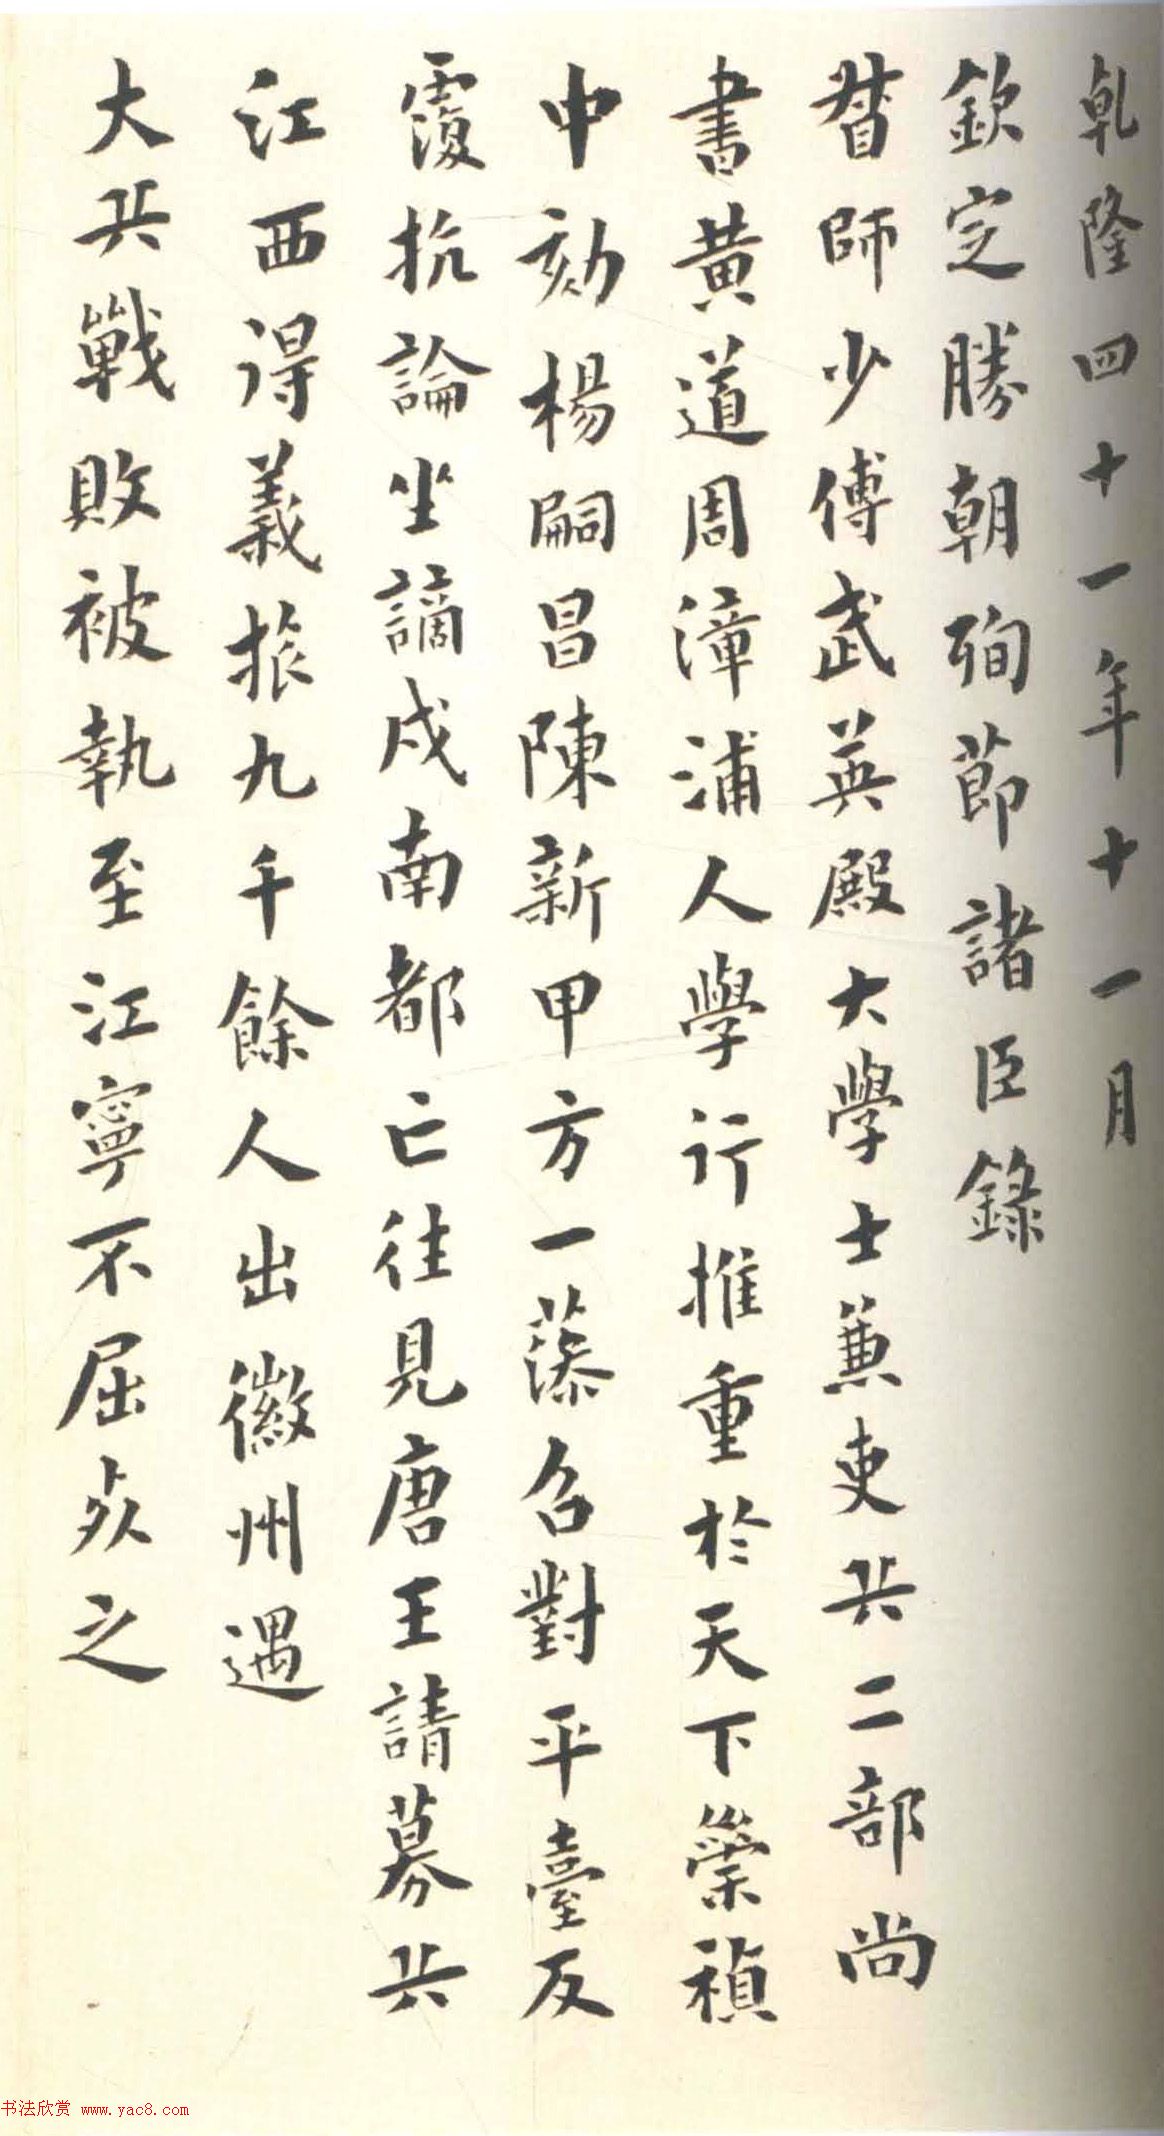 乾隆四十一年十一月
欽定勝朝殉節諸臣錄
督師少傅武英殿大學士兼吏兵二部尚
書黃道周漳浦人學行推重於天下崇禎
中劾楊嗣昌陳新甲方一藻召對平臺反
覆抗論坐謫戍南都亡往見唐王請募兵
江西得義旅九千餘人出徽州遇
大兵戰敗被執至江寧不屈死之
书法欣赏 www.yac8.com